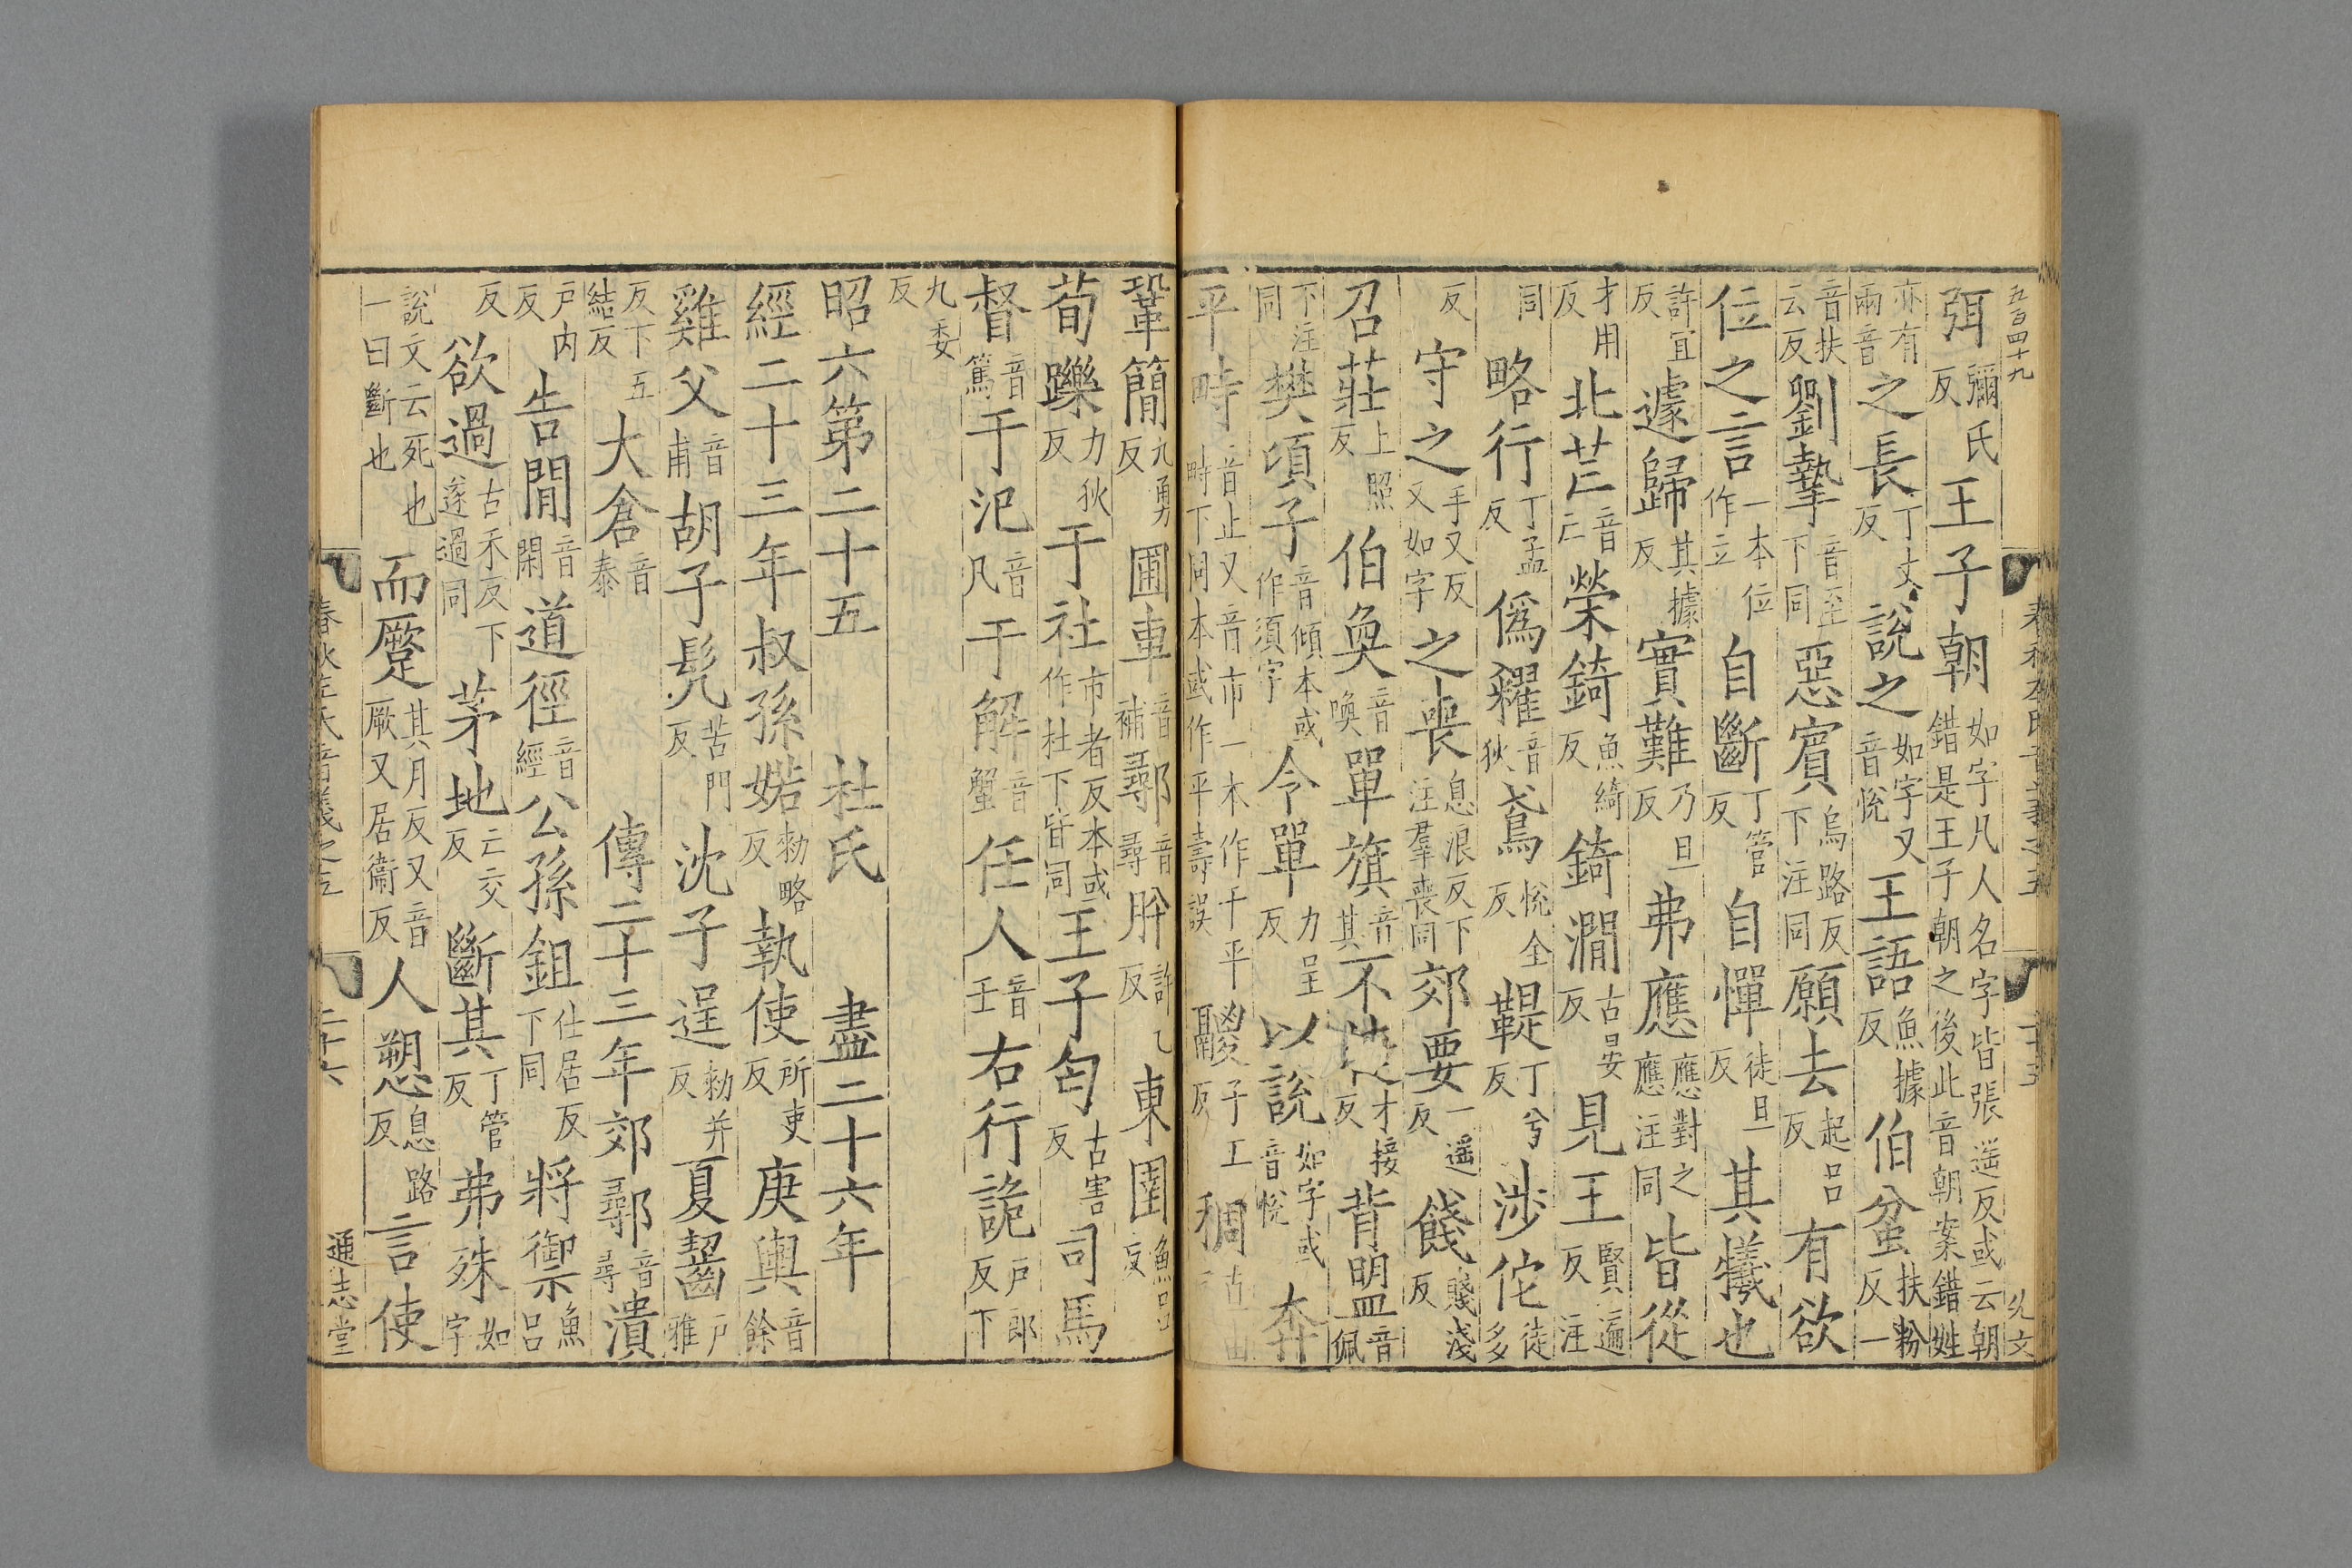 五百四十九 春秋左氏音義之五 二十五
弭彌氏反王子朝如字凡人名字皆張遥反或云朝錯是王子朝之後此音朝案錯姓
亦有兩音之長丁丈反說之如字又音悅王語魚據反伯蚠扶粉反一
音扶云反劉摯音至下同惡賓烏路反下注同願去起呂反有欲
位之言一本位作立自斷丁管反自憚徒旦反其犧也
許宜反遽歸其據反實難乃旦反弗應應對之應注同皆從
才用反北芒音亡榮錡魚綺反錡澗古晏反見王賢遍反注
同略行丁孟反僞糴音狄鳶悅全反鞮丁兮反涉佗徒多
反守之手又反又如字之喪息浪反下注羣喪同郊要一遥反餞賤淺反
召莊上照反伯奐音喚單旗音其不捷才接反背盟音佩
下注同樊頃子音傾本或作須字令單力呈反以說如字或音悅奔
平畤音止又音市一本作千平畤下同本或作平壽誤鬷子工反稠
鞏簡九勇反圃車音補鄩音尋肸許乙反東圉魚呂反
荀躒力狄反于社市者反本或作杜下皆同王子匄古害反司馬
督音篤于氾音凡于解音蟹任人音壬右行詭戶郎反下
九委反
昭六第二十五 杜氏 盡二十六年
經二十三年叔孫婼勑略反執使所吏反庚輿音餘
雞父音甫胡子髡苦門反沈子逞勑井反夏齧戶雅
反下五結反大倉音泰傳二十三年郊鄩音尋潰
戶内反告閒音閑道徑音經公孫鉏仕居反下同將禦魚呂
反欲過古禾反下遂過同茅地亡交反斷其丁管反弗殊如字
說文云死也一曰斷也而蹷其月反又音厥又居衞反人愬息路反言使
春秋左氏音義之五 二十六 通志堂